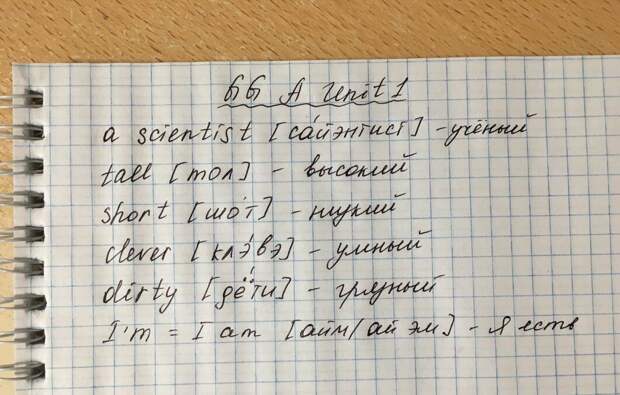 GG A Unit 1
a scientist [са́йэнтист] - учёный
tall [тол] - высокий
short [шо́т] - низкий
clever [клэ́вэ] - умный
dirty [дё́ти] - грязный
I'm = I am [айм/ай эм] - я есть